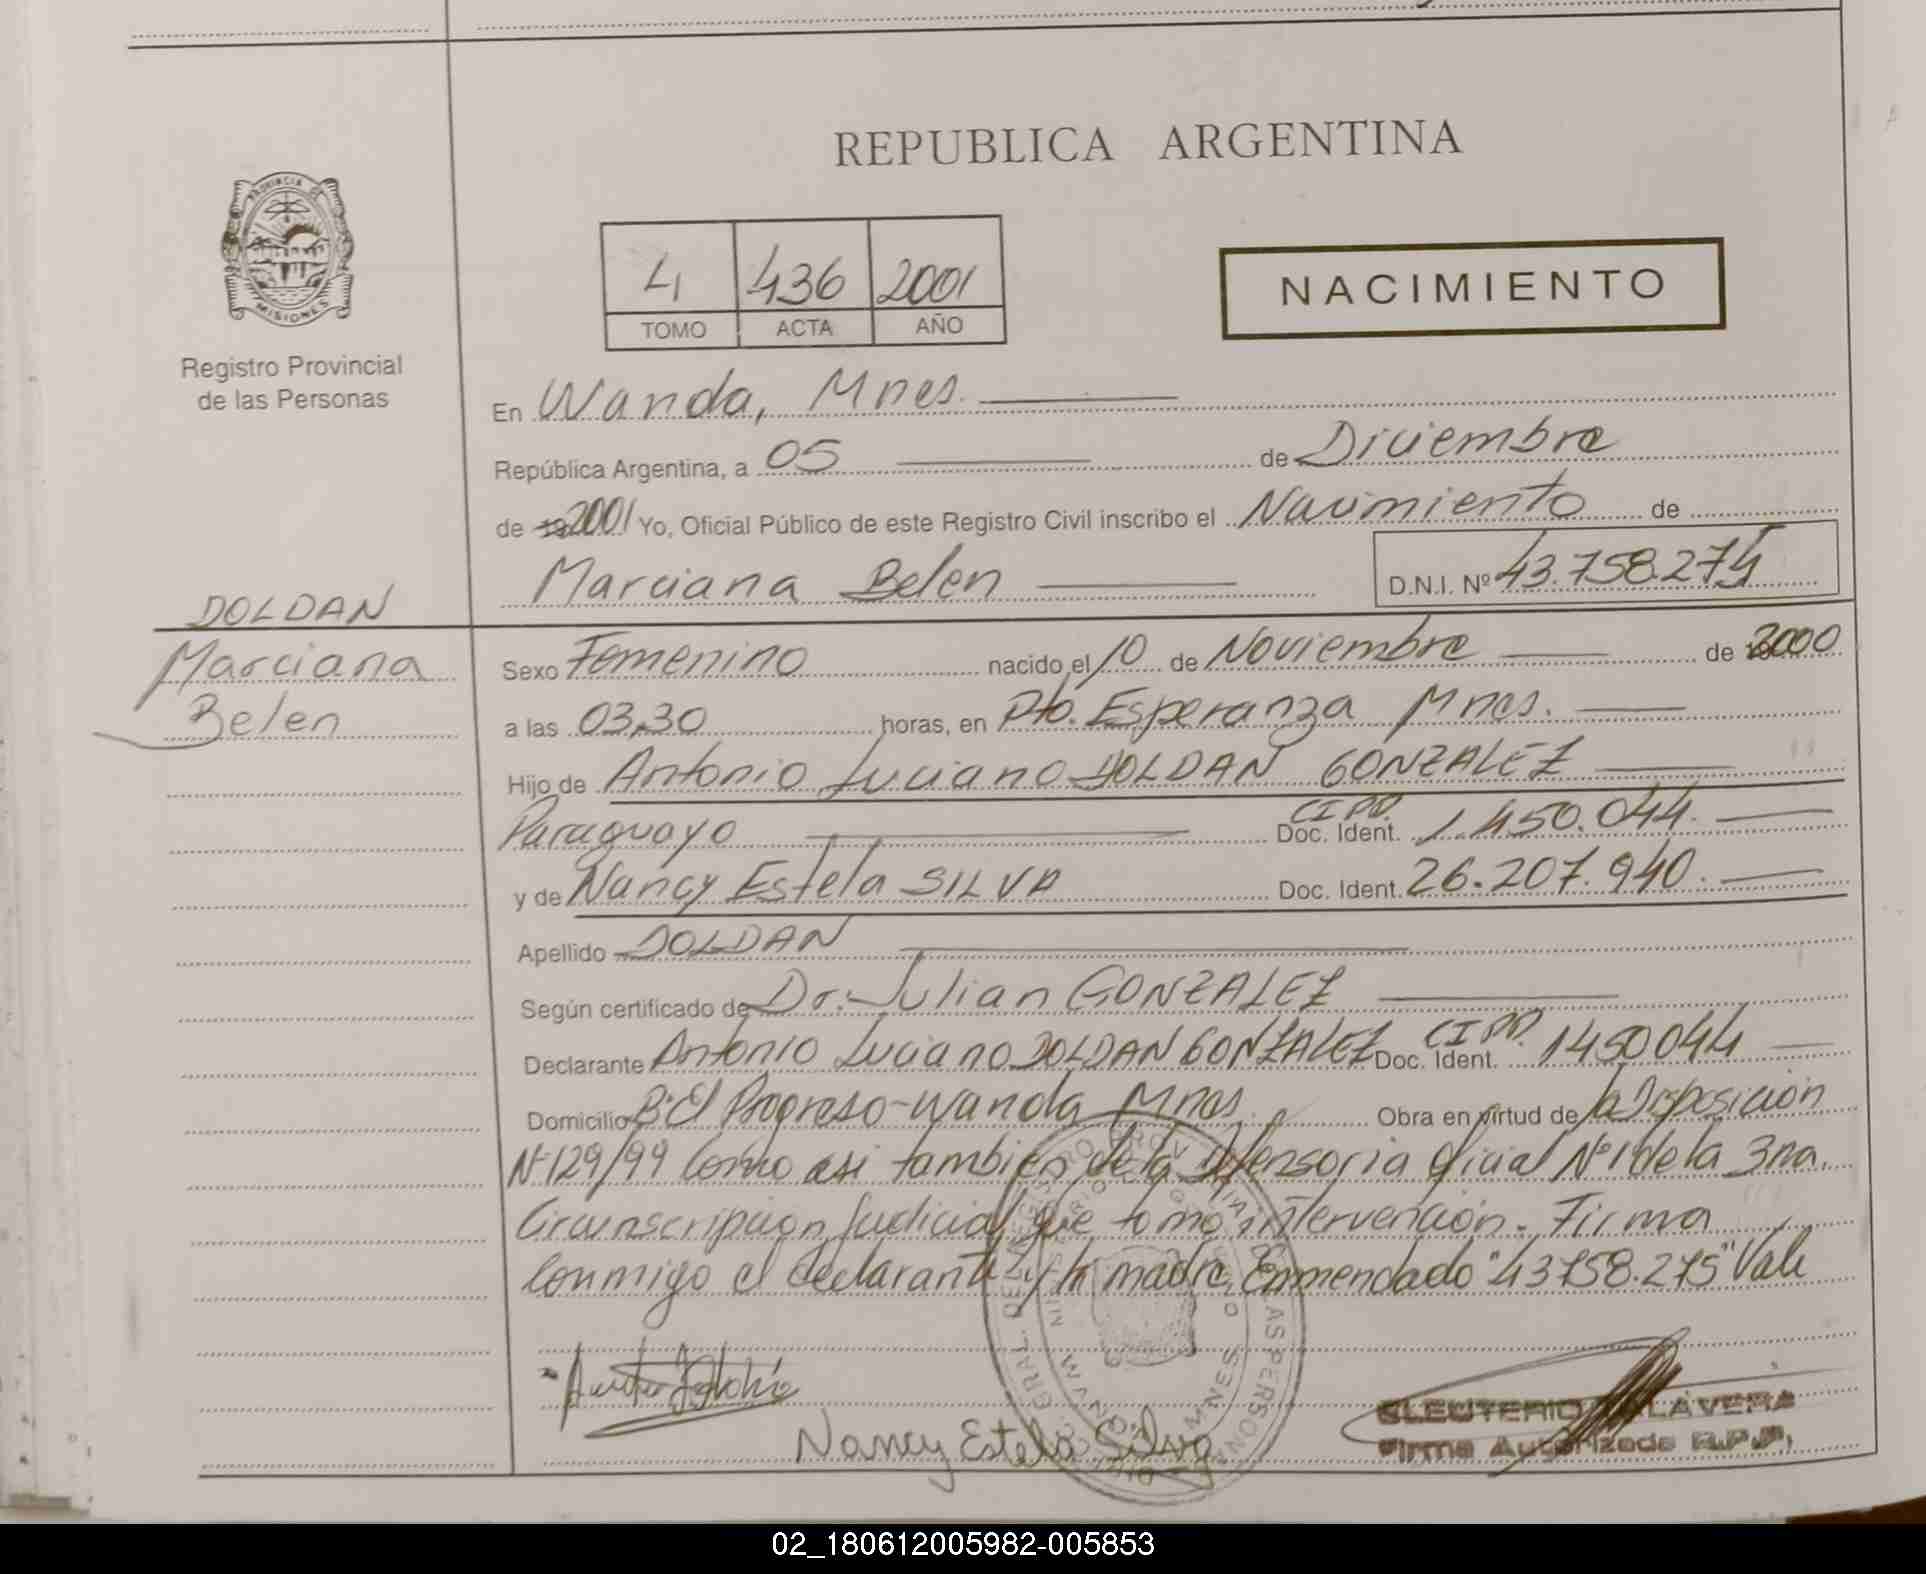 REPUBLICA ARGENTINA
PROVINCIA DE
MISIONES
Registro Provincial
de las Personas
4 436 2001
TOMO ACTA AÑO
NACIMIENTO
En Wanda, Mnes.
República Argentina, a 05 de Diciembre
de 19 2001 Yo, Oficial Público de este Registro Civil inscribo el Nacimiento de
Marciana Belen D.N.I. Nº 43.758.275
DOLDAN
Marciana
Belen
Sexo Femenino nacido el 10 de Noviembre de 2000
a las 03,30 horas, en Pto. Esperanza Mnes.
Hijo de Antonio Luciano DOLDAN GONZALEZ
Paraguayo Doc. Ident. CI PP. 1.450.044.
y de Nancy Estela SILVA Doc. Ident. 26.207.940.
Apellido DOLDAN
Según certificado de Dr. Julian GONZALEZ
Declarante Antonio Luciano DOLDAN GONZALEZ Doc. Ident. CI PP. 1450044
Domicilio Bº El Progreso-Wanda Mnes. Obra en virtud de la Disposición
Nº 129/99 Como asi tambien de la Defensoria Oficial Nº 1 de la 3ra.
Circunscripcion Judicial que tomo intervención. Firma
Conmigo el declarante y la madre. Enmendado "43758.275" Vale
Nancy Estela Silva
ELEUTERIO TALAVERA
Firma Autorizada R.P.P.
02_180612005982-005853